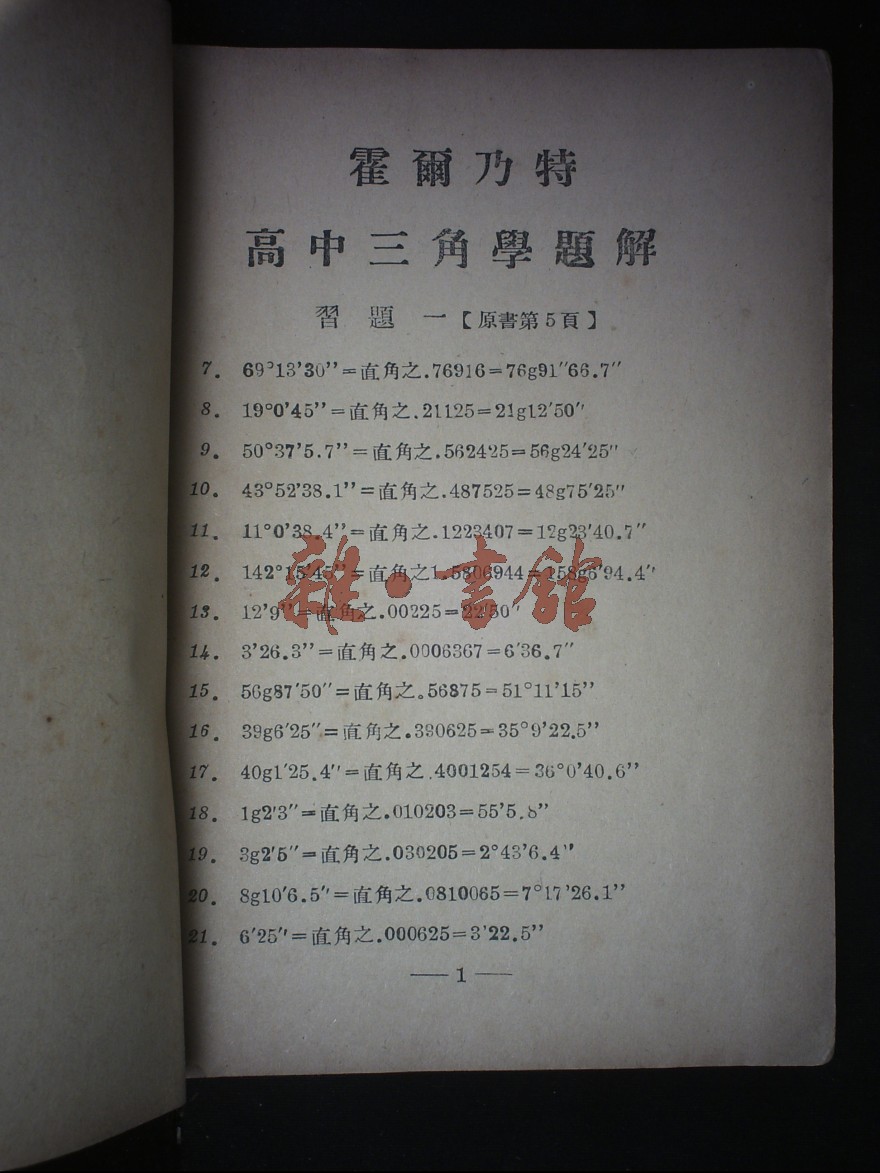 霍爾乃特
高中三角學題解
習題一【原書第5頁】
7. 69°13'30''=直角之.76916=76g91''66.7''
8. 19°0'45''=直角之.21125=21g12'50''
9. 50°37'5.7''=直角之.562425=56g24'25''
10. 43°52'38.1''=直角之.487525=48g75'25''
11. 11°0'38.4''=直角之.1223407=12g23'40.7''
12. 142°15'45''=直角之1.5806944=158g6'94.4''
13. 12'9''=直角之.00225=22'50''
14. 3'26.3''=直角之.0006367=6'36.7''
15. 56g87'50''=直角之。56875=51°11'15''
16. 39g6'25''=直角之.390625=35°9'22.5''
17. 40g1'25.4''=直角之.4001254=36°0'40.6''
18. 1g2'3''=直角之.010203=55'5.8''
19. 3g2'5''=直角之.030205=2°43'6.4''
20. 8g10'6.5''=直角之.0810065=7°17'26.1''
21. 6'25''=直角之.000625=3'22.5''
— 1 —
雜·書館